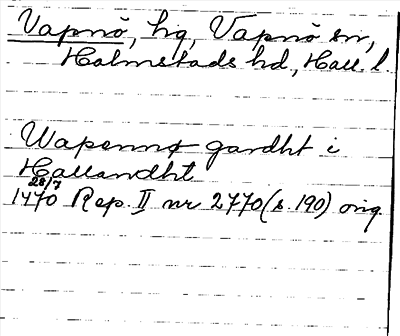 Vapnö, hg, Vapnö sn,
Halmstads hd., Hall. l.
Wapennø gardht i
Hallandht
28/7
1470 Rep. II nr 2770 (s. 190) orig.